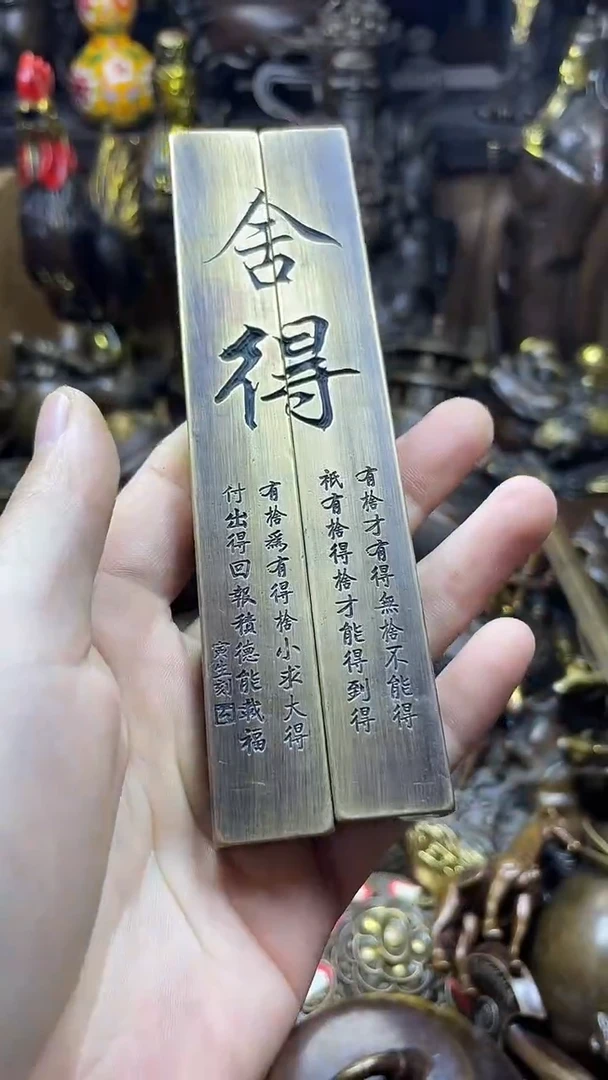 舍得
有捨才有得無捨不能得
衹有捨得捨才能得到得
有捨爲有得捨小求大得
付出得回報積德能載福
寅生刻